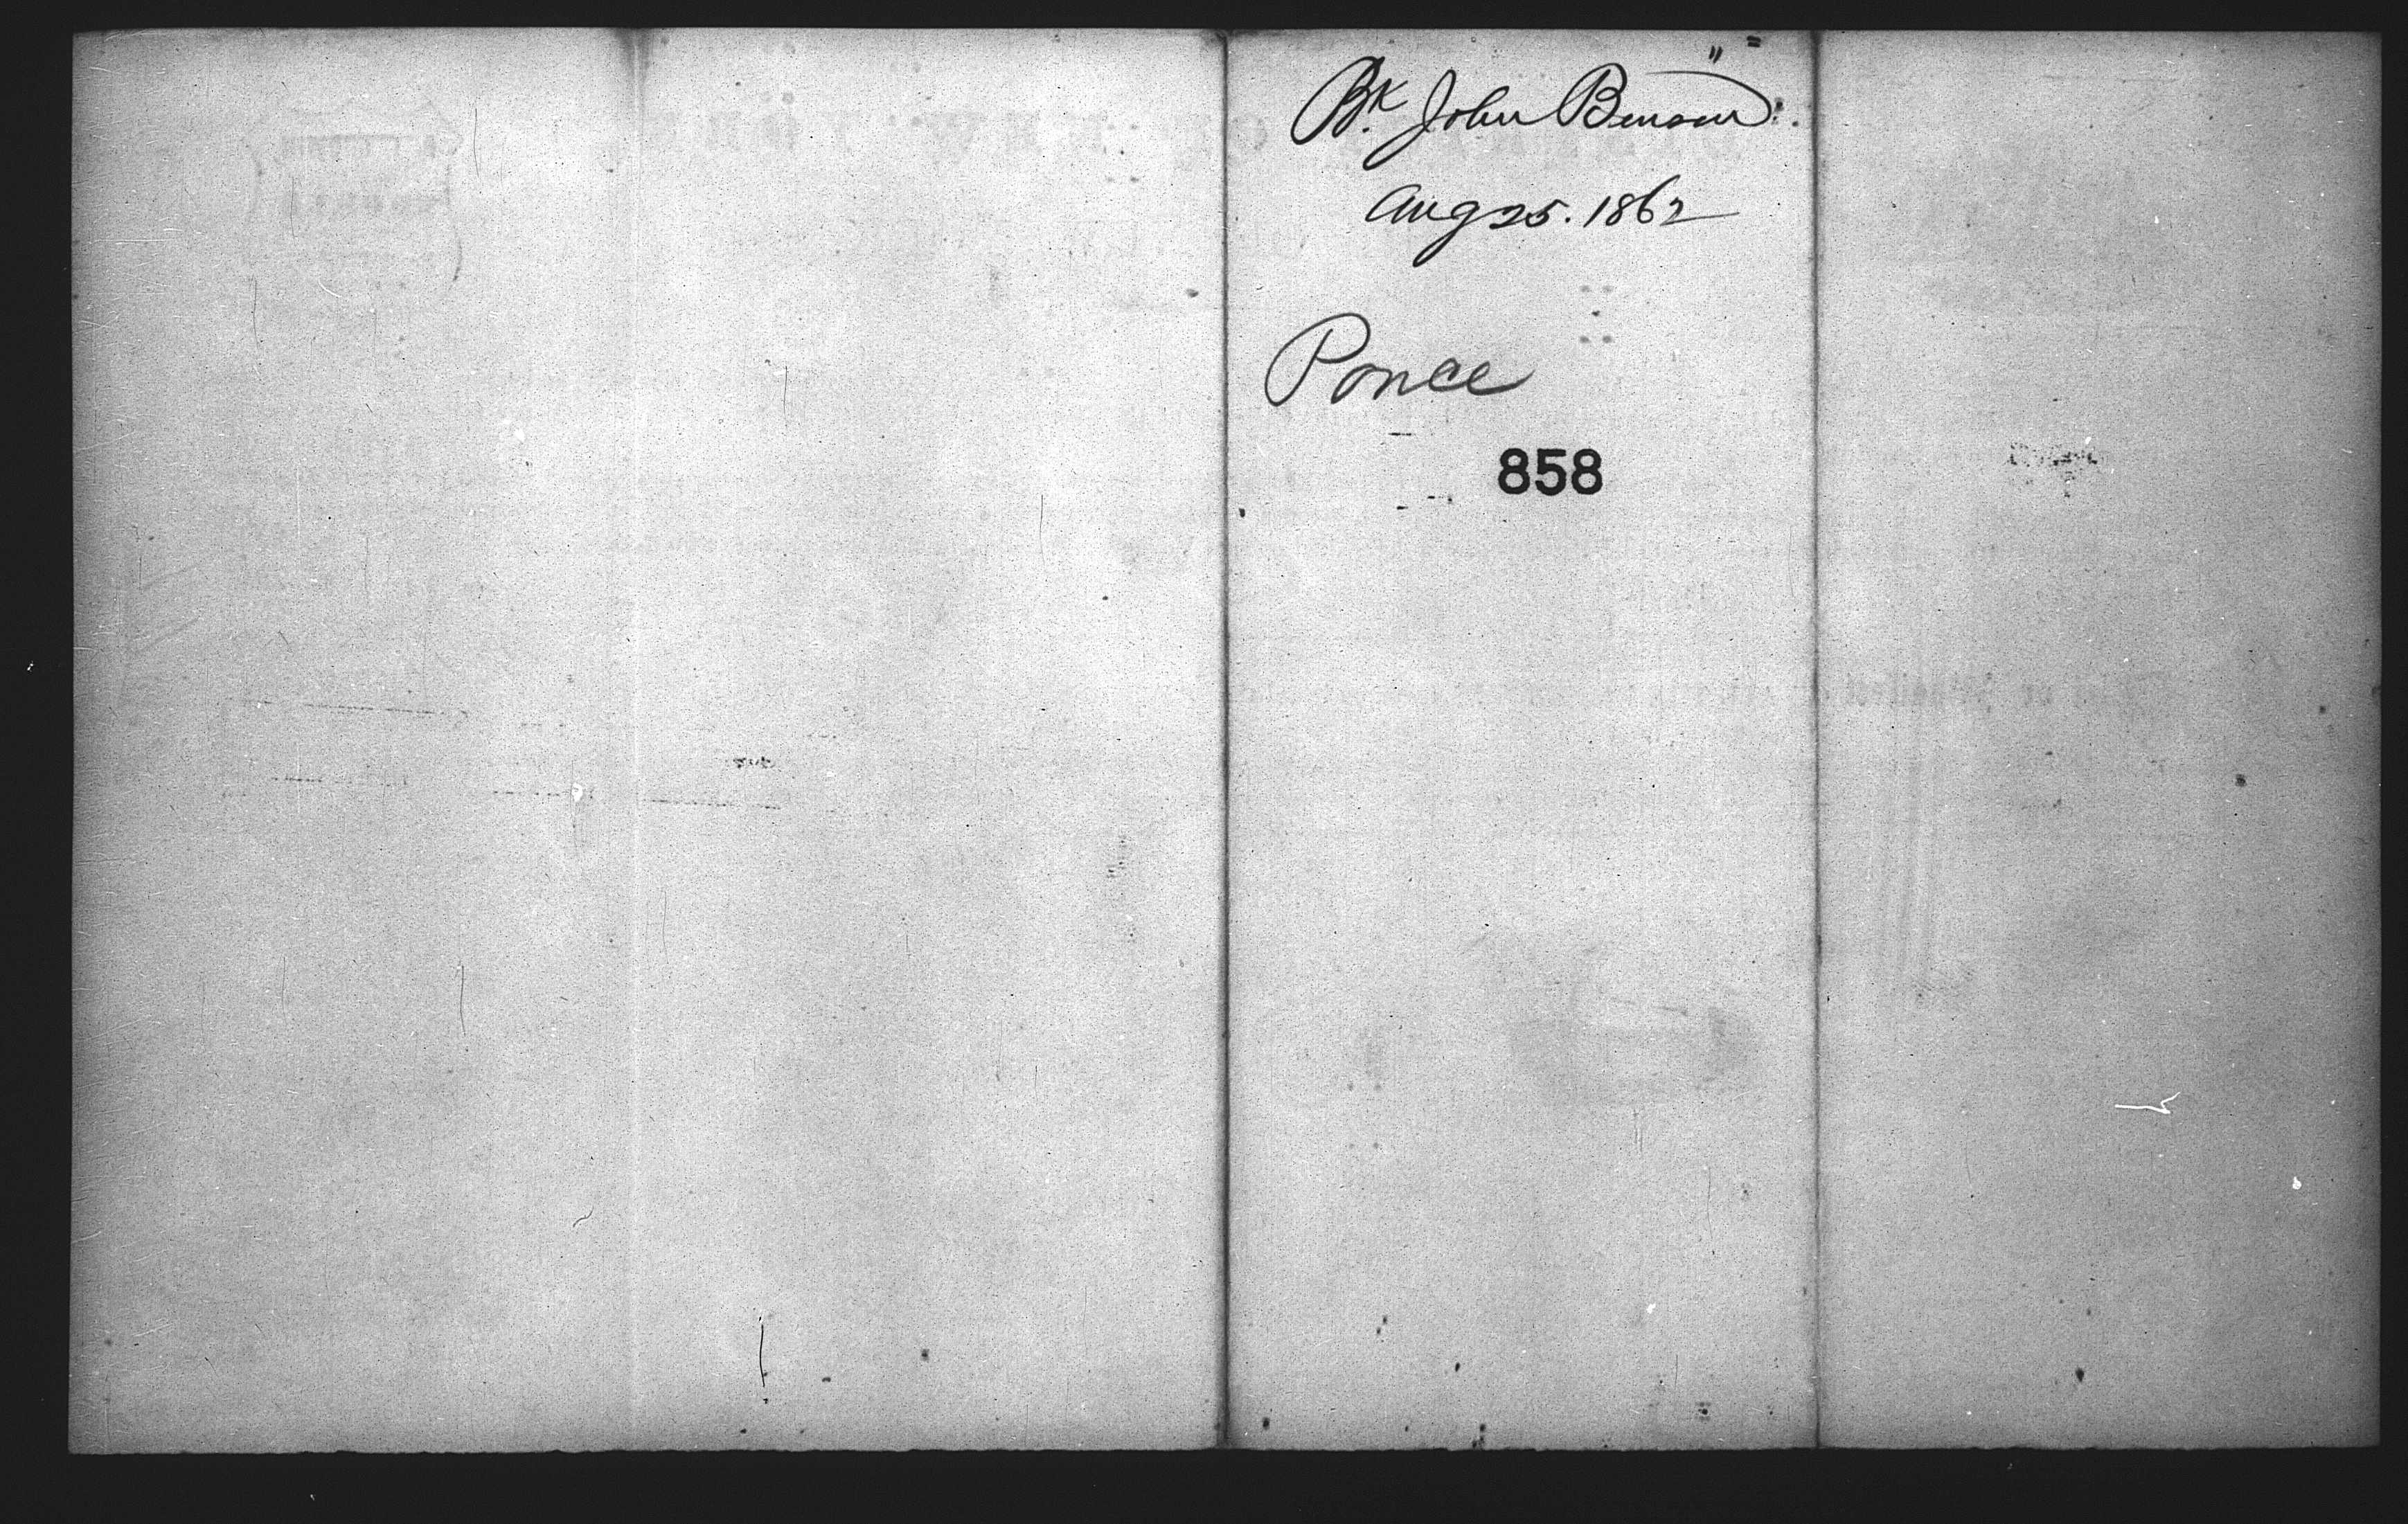 Bk. John Benson.
Aug 25. 1862
Ponce
858